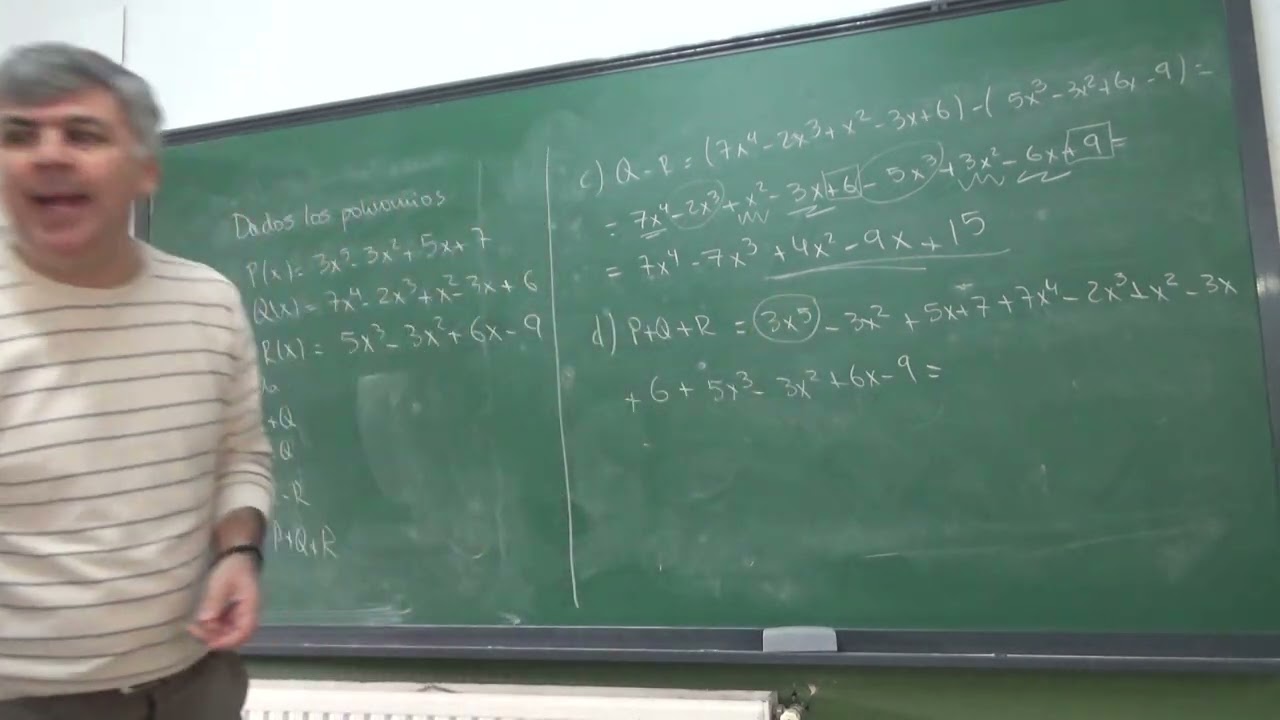 Dados los polinomios
P(x) = 3x⁵ - 3x² + 5x + 7
Q(x) = 7x⁴ - 2x³ + x² - 3x + 6
R(x) = 5x³ - 3x² + 6x - 9
+Q
Q
- R
P+Q+R
c) Q - R = (7x⁴ - 2x³ + x² - 3x + 6) - ( 5x³ - 3x² + 6x - 9 ) =
= 7x⁴ - 2x³ + x² - 3x + 6 - 5x³ + 3x² - 6x + 9 =
= 7x⁴ - 7x³ + 4x² - 9x + 15
d) P+Q+R = 3x⁵ - 3x² + 5x + 7 + 7x⁴ - 2x³ + x² - 3x
+ 6 + 5x³ - 3x² + 6x - 9 =